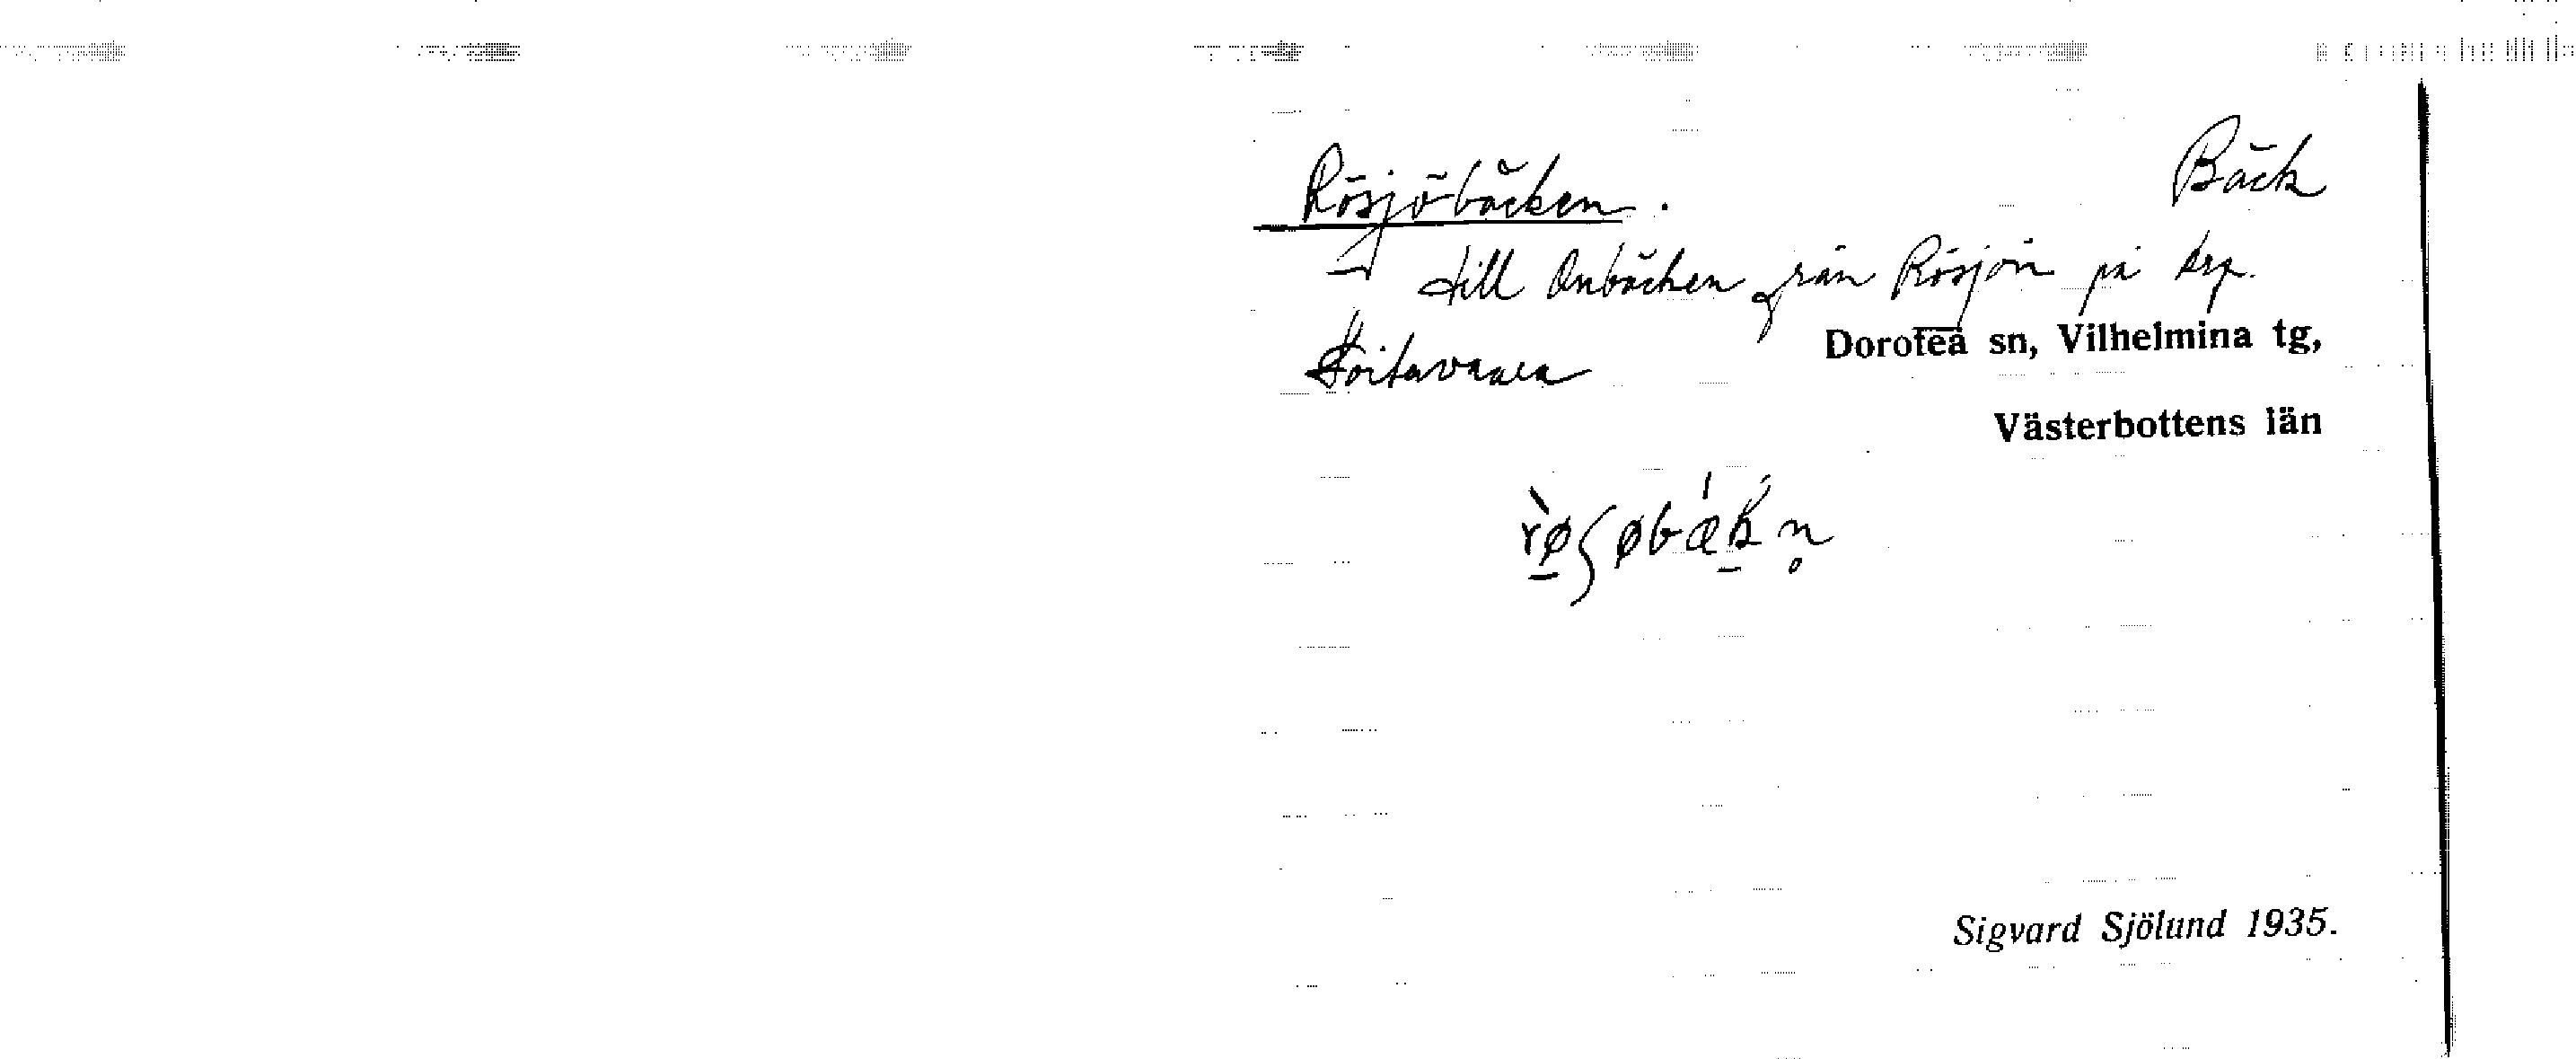 Rösjöbäcken. Bäck
till Onbäcken från Rösjön på krp.
Dorotea sn, Vilhelmina tg,
Västerbottens län
Sigvard Sjölund 1935.